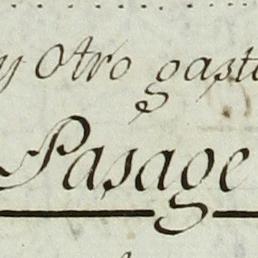 y Otro gasto
Pasage